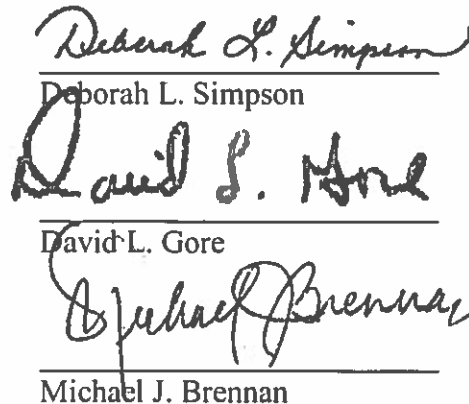 Deborah L. Simpson
Deborah L. Simpson
David L. Gore
David L. Gore
Michael J Brennan
Michael J. Brennan